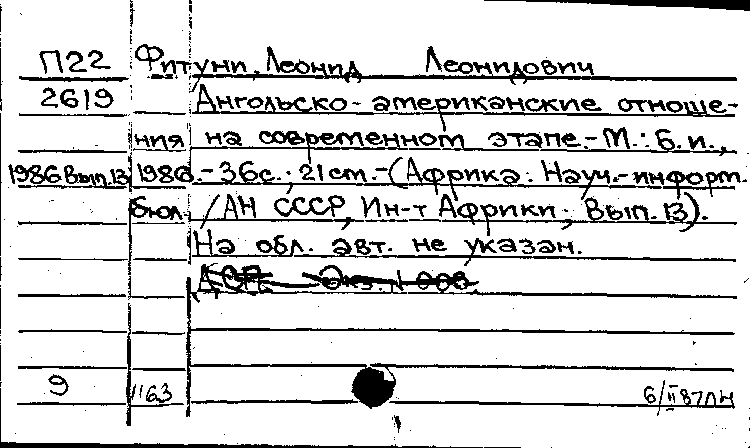 П22 Фитуни, Леонид Леонидович
2619 Ангольско-американские отноше-
ния на современном этапе.-М.: Б.и.,
1986 Вып.13 1986.-36с.; 21 cm.-(Африка: Науч.-информ.
бюл. /АН СССР, Ин-т Африки; Вып. 13).
На обл. авт. не указан.
9 1163 6/II 87